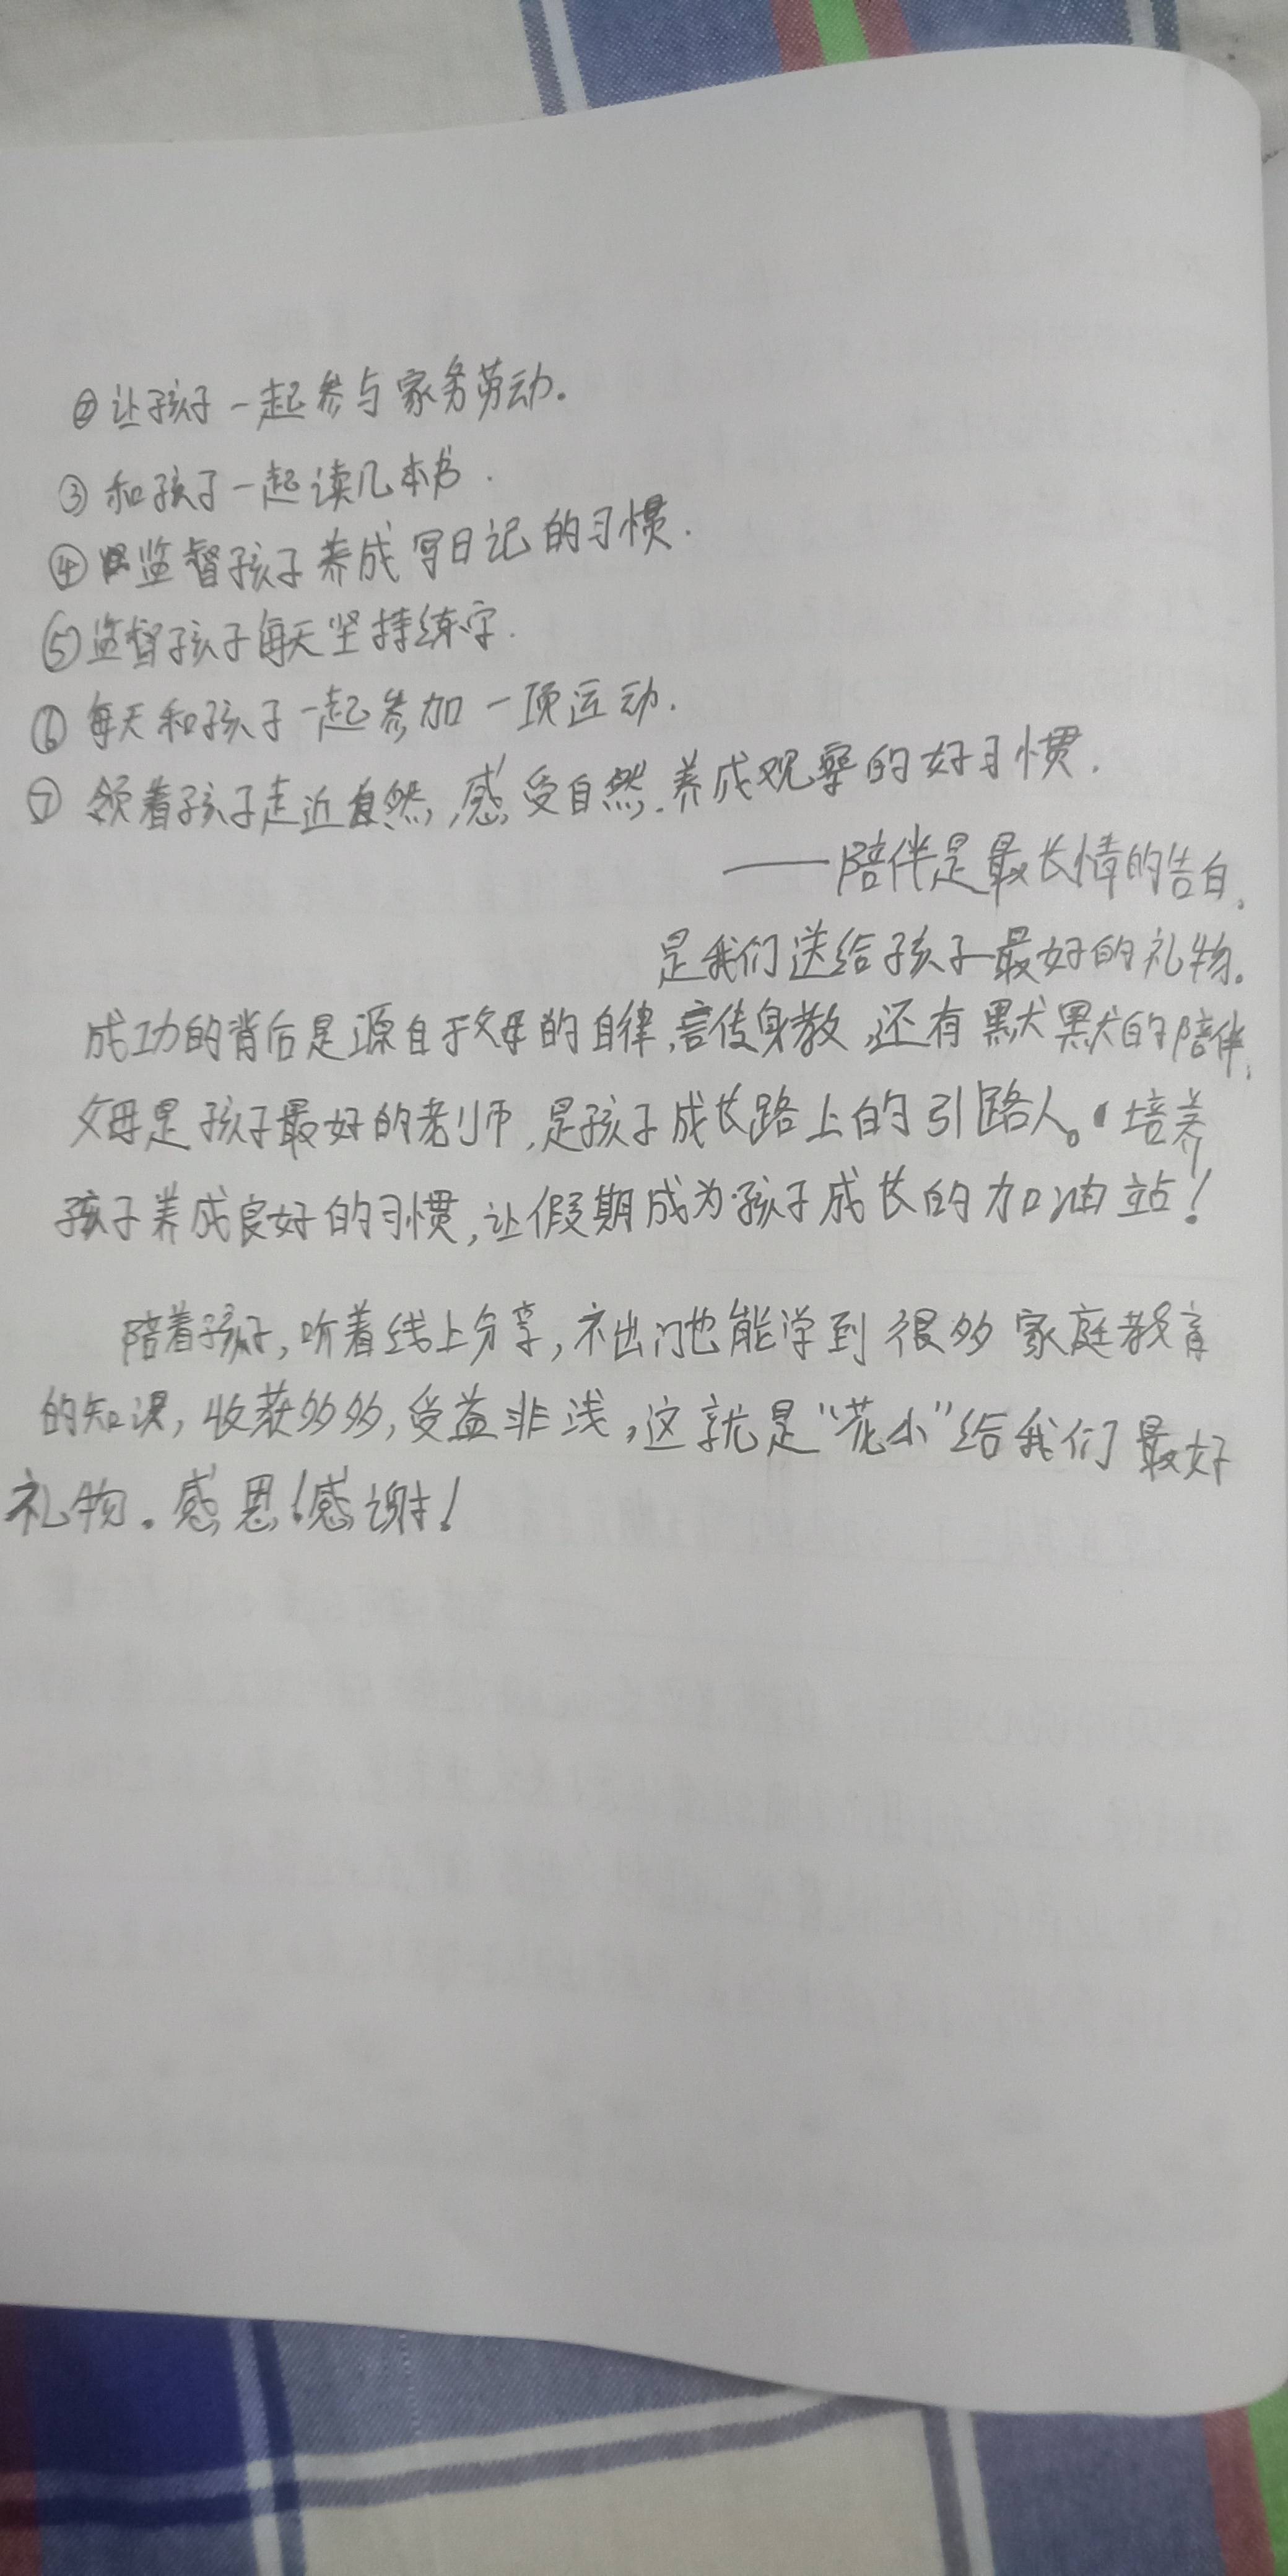 ②让孩子一起参与家务劳动。
③和孩子一起读几本书.
④监督孩子养成写日记的习惯.
⑤监督孩子每天坚持练字.
⑥每天和孩子一起参加一项运动.
⑦领着孩子走近自然,感受自然.养成观察的好习惯.
——陪伴是最长情的告白,
是我们送给孩子最好的礼物。
成功的背后是源自于父母的自律,言传身教,还有默默的陪伴,
父母是孩子最好的老师,是孩子成长路上的引路人。培养
孩子养成良好的习惯,让假期成为孩子成长的加油站!
陪着孩子,听着线上分享,不出门也能学到很多家庭教育
的知识,收获多多,受益非浅,这就是“花小”给我们最好
礼物。感恩!感谢!